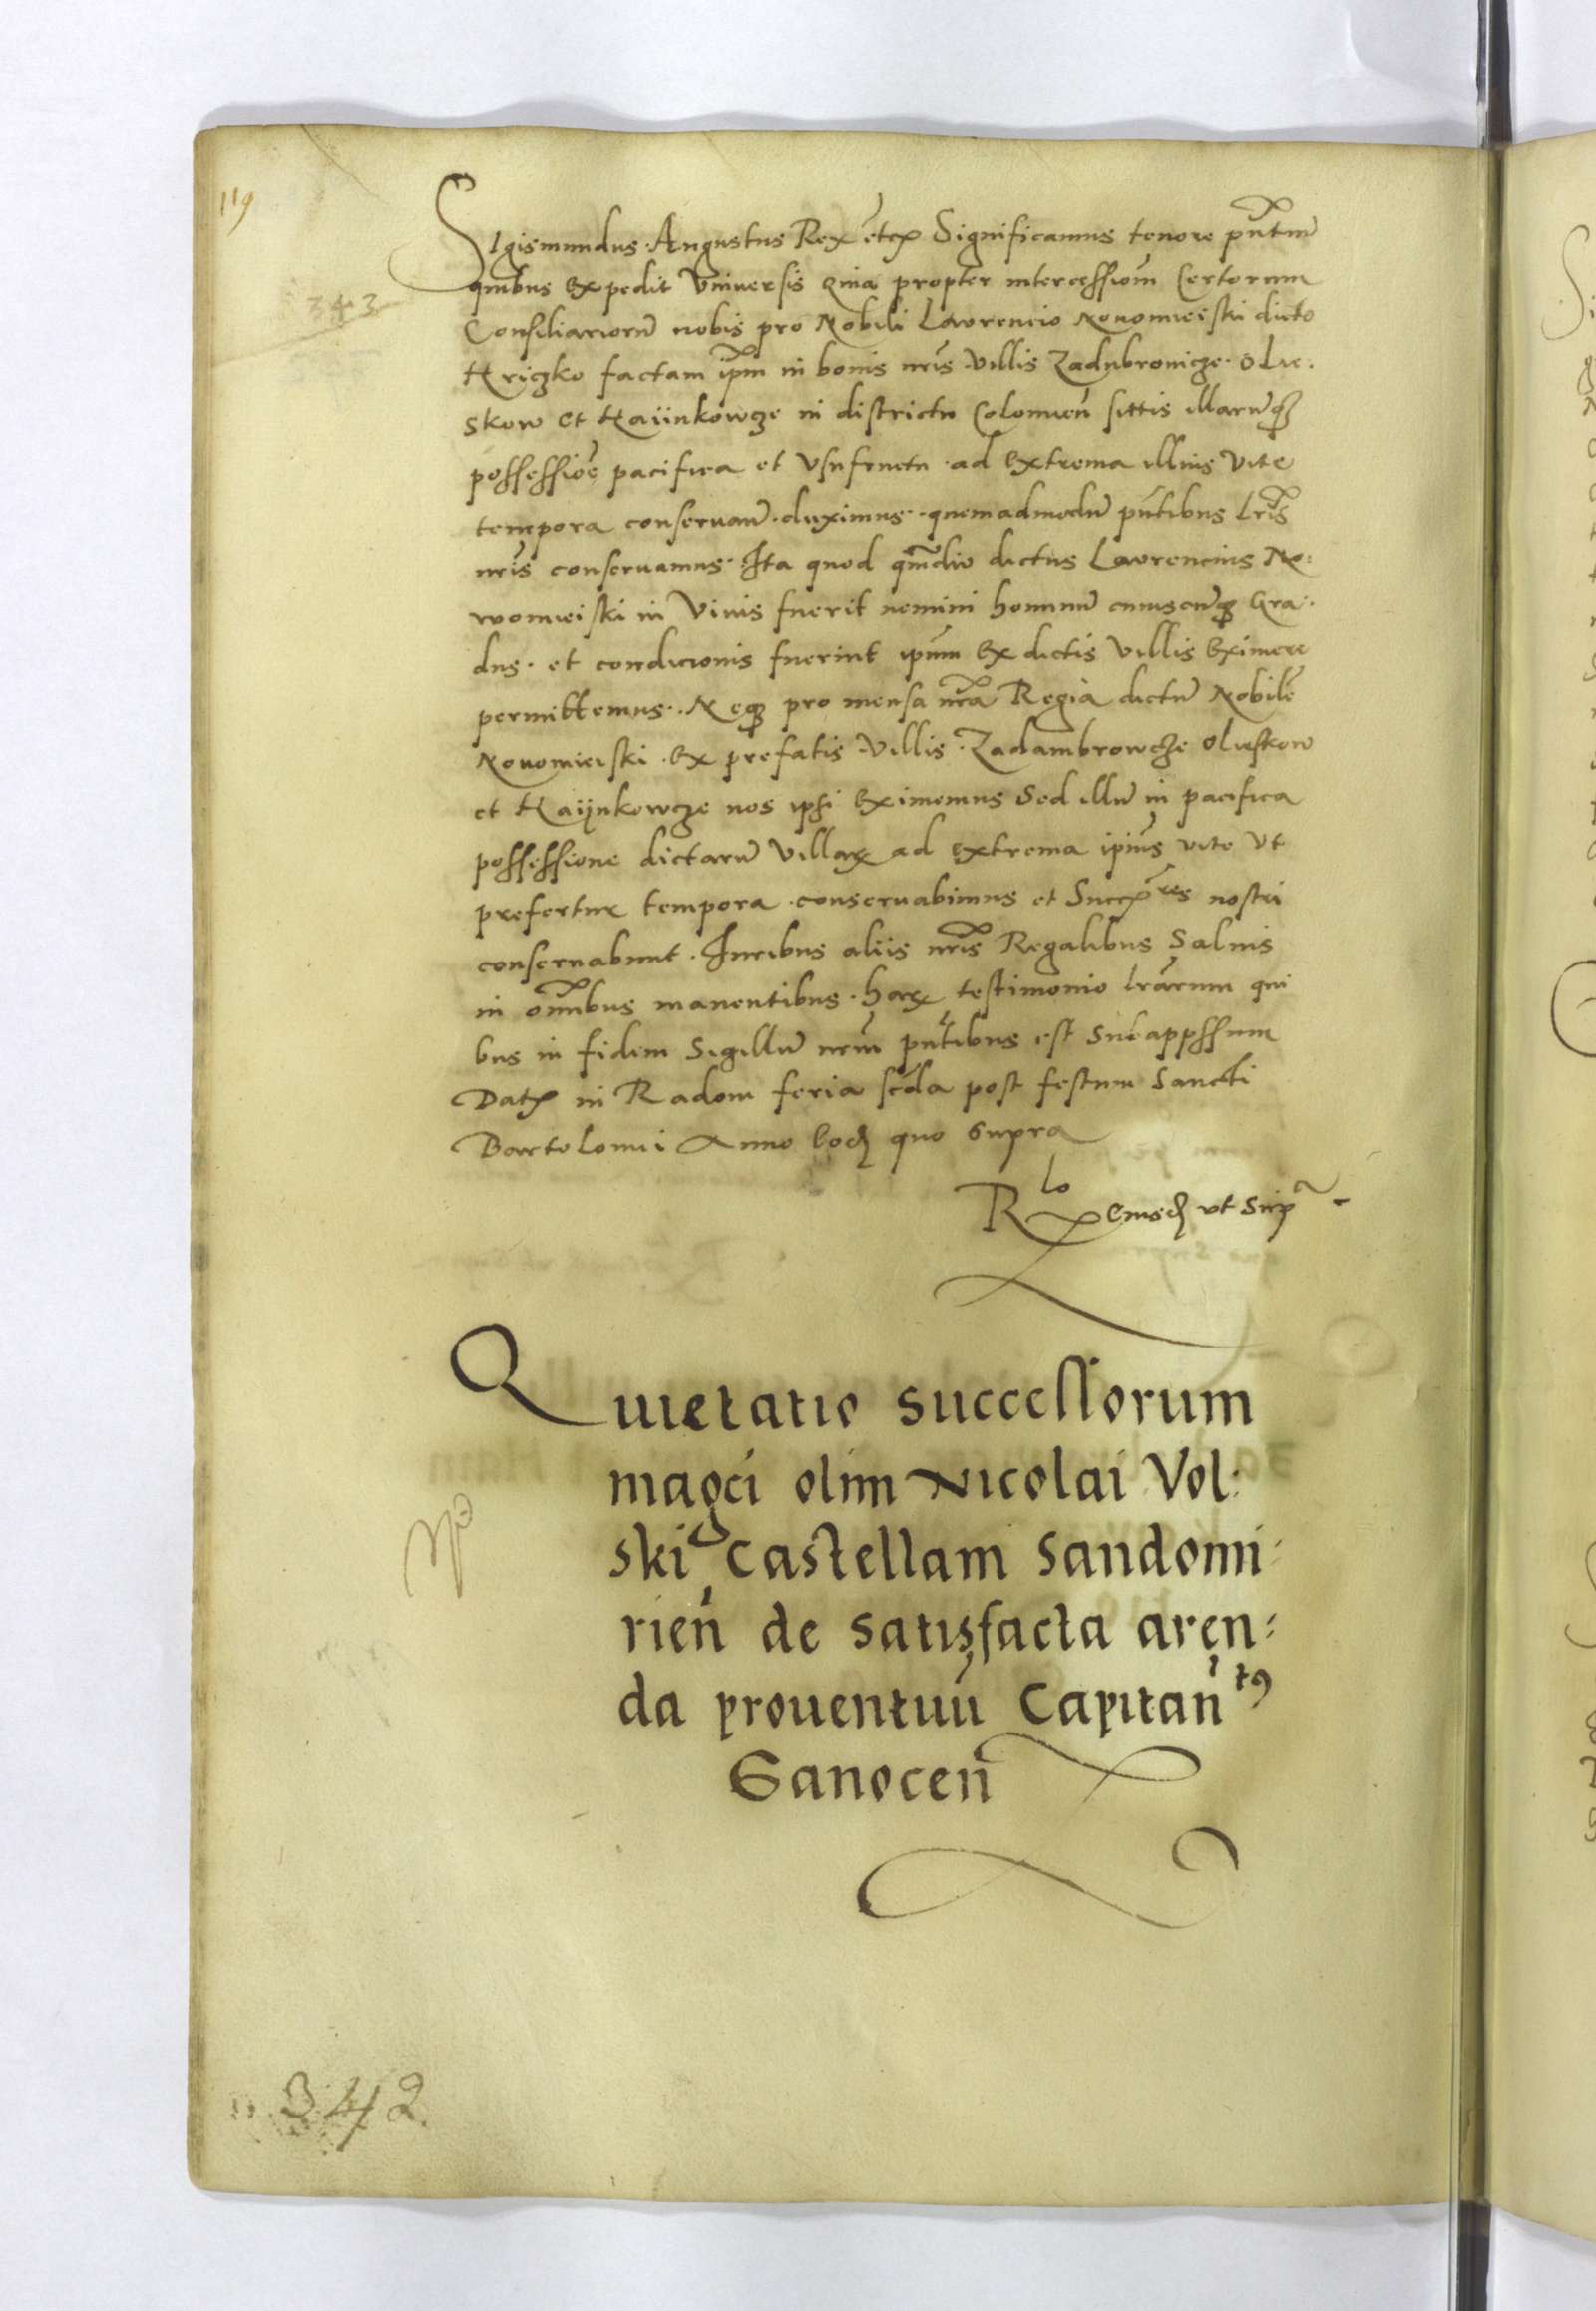 119
Sigismundus Augustus Rex etc Significamus tenore pntium
quibus expedit Vniuersis Quia propter intercessiom Certorum
Consiliariorum nobis pro Nobili Laurencio Nouomieiski dicto
Hriczko factam ipm in bonis nris Villis Zadubrowicze Olie:
skow et Haiinkowcze in districtu Colomien sittis illarumq
possessioe pacifica et Vsufructu ad Extrema illius Vite
tempora conseruand duximus quemadmodum pntibus lris
nris conseruamus Ita quod qmdiu dictus Laurencius No:
womieiski in Viuis fuerit nemini hominum cuiuscunq Gra:
dus et condicionis fuerint ipsum Ex dictis Villis Eximere
permittemus. Neq pro mensa nra Regia dictum Nobilem
Nouomieiski Ex prefatis Villis Zadambrowcze Olieskow
et Haijnkowcze nos ipsi Eximemus Sed illum in pacifica
possessione dictarum Villar ad Extrema ipius vite Vt
prefertur tempora conseruabimus et Succres nostri
conseruabunt. Iuribus aliis nris Regalibus Saluis
in omnibus manentibus. har testimonio lrarum qui
bus in fidem Sigillum nrm pntibus est Subappssum
Dat in Radom feria scda post festum Sancti
Bartolomei Anno Eod quo supra
Rlo Eiusd vt supra
343
Quietatio successorum
magci olim Nicolai Vol:
ski Castellani Sandomi:
rien de satisfacta aren:
da prouentuu Capitantus
Sanocen
342